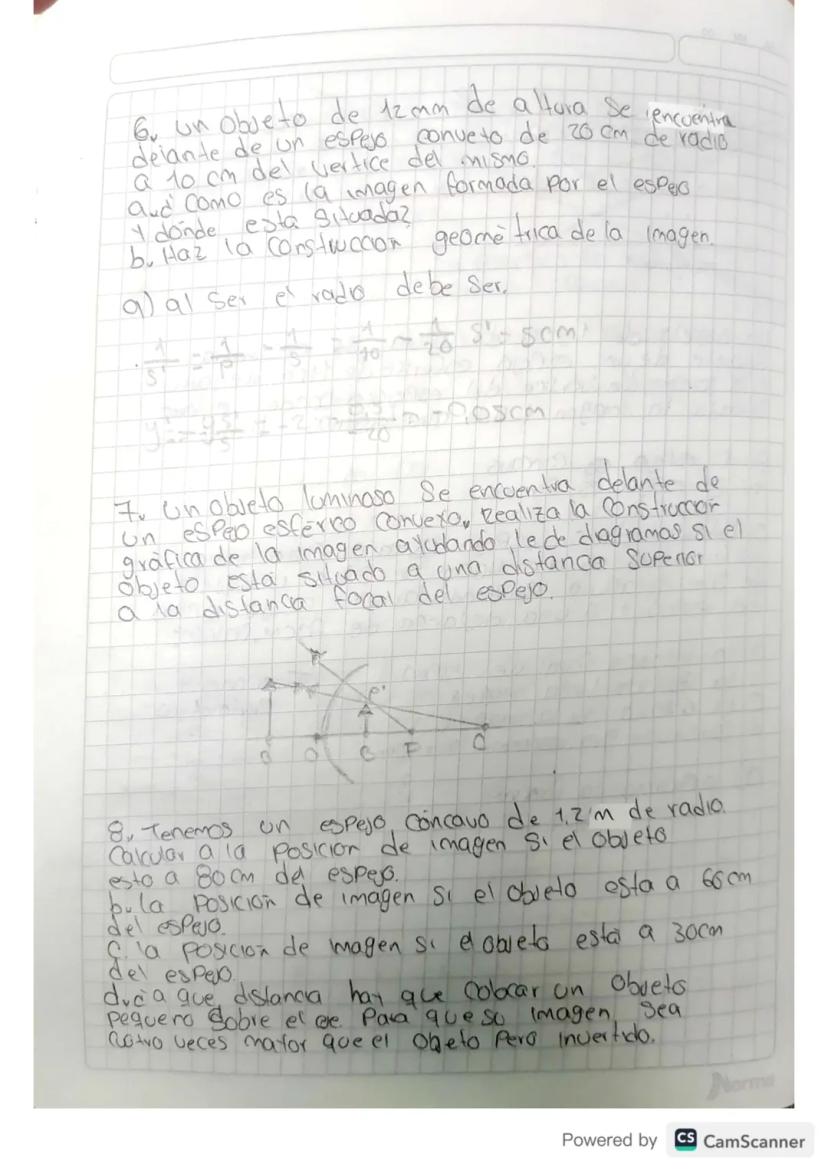 6. un objeto de 12 mm de altura se encuentra
delante de un espejo conveto de 20 cm de radio
a 10 cm del vertice del mismo.
a ¿ como es la imagen formada por el espejo
y donde esta situada?
b. Haz la construccion geométrica de la imagen.
a) al ser el radio debe ser.
1/s' = 1/p - 1/s = 1/10 - 1/20 s' = 5cm
= -0,05cm
7. un objeto luminoso se encuentra delante de
un espejo esférico convexo, Realiza la construccion
gráfica de la imagen ayudando le de diagramas si el
objeto está situado a una distancia superior
a la distancia focal del espejo.
O O C F C
8. Tenemos un espejo cóncavo de 1,2 m de radio.
Calcular a la posicion de imagen si el objeto
esto a 80 cm del espejo.
b. la posicion de imagen si el objeto esta a 66 cm
del espejo.
c. la posicion de imagen si el objeto está a 30cm
del espejo.
d. ¿ a que distancia hay que colocar un objeto
pequeño sobre el eje para que su imagen sea
cuatro veces mayor que el objeto pero invertido.
Norma
Powered by CS CamScanner